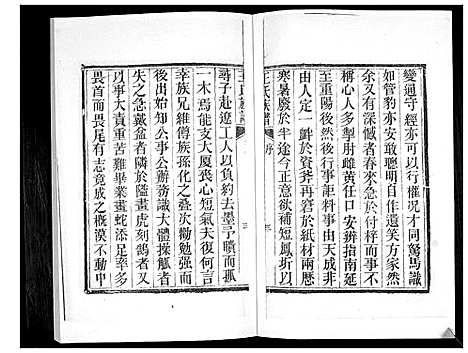 變通守經亦可以行權況才同駑馬識
如管豹亦安敢聰明自作遺笑方家然
余又有深憾者春來急於付梓而事不
稱心人多掣肘雌黃任口安辨指南延
至重陽後然後行事詎料事由天成不
由人定一衅於資斧再窘於紙材兩曆
寒暑廢於半途今正意欲補短鳳圻以
王氏族譜 序 三
尋子赴遼工人以負約去墨子曠而孤
一木焉能支大厦喪心短氣夫復何言
幸族兄維僔族孫化之叠次勷勉强而
後出始知公事公辦務識大體操觚者
失之急戴盆者隣於隘畫虎刻鵠者又
以事大責重苦難畢業畫蛇添足率多
畏首而畏尾有志竟成之概漠不動中